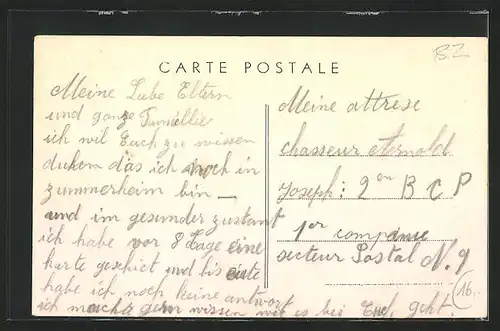 BZ
CARTE POSTALE
Meine Liebe Eltern
und ganze Familie
ich wil Euch zu wissen
duhen das ich noch in
zummerheim bin —
und im gesunder zustant
ich habe vor 8 Tage eine
karte geschiet und bis eute
habe ich noch keine antwort
ich mochte gern wissen wie es bei Euch geht.
Meine attrese
chasseur Arnold
Joseph: 2 en B C P
1er compagnie
secteur Postal N. 9
16.